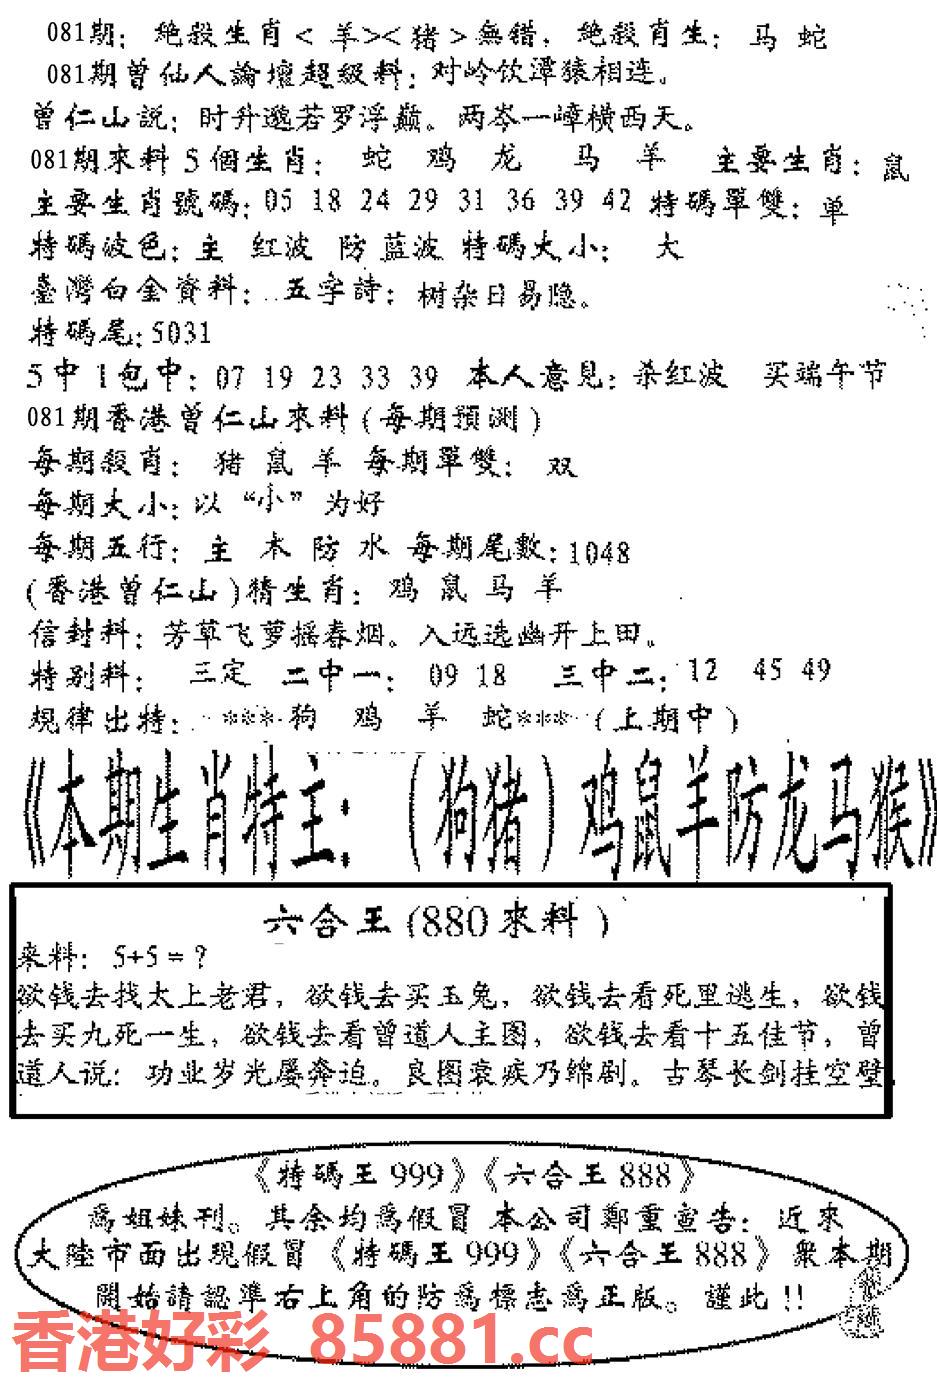 081期：絶殺生肖< 羊><猪>無錯，絶殺肖生：马 蛇
081期曾仙人論壇超級料：对岭饮潭猿相连。
曾仁山説：时升邈若罗浮巅。两岑一嶂横西天。
081期來料5個生肖：蛇 鸡 龙 马 羊 主要生肖：鼠
主要生肖號碼：05 18 24 29 31 36 39 42 特碼單雙：单
特碼波色：主 红波 防 蓝波 特碼大小：大
臺灣白金資料：五字詩：树杂日易隐。
特碼尾：5031
5中1包中：07 19 23 33 39 本人意見：杀红波 买端午节
081期香港曾仁山來料(每期預測)
每期殺肖：猪 鼠 羊 每期單雙：双
每期大小：以“小”为好
每期五行：主 木 防 水 每期尾數：1048
(香港曾仁山)猜生肖：鸡 鼠 马 羊
信封料：芳草飞萝摇春烟。入远选幽开上田。
特别料：三定 二中一：09 18 三中二：12 45 49
規律出特：***狗 鸡 羊 蛇***(上期中)
《本期生肖特主：（狗猪）鸡鼠羊防龙马猴》
六合王(880來料)
來料：5+5=？
欲钱去找太上老君，欲钱去买玉兔，欲钱去看死里逃生，欲钱
去买九死一生，欲钱去看曾道人主图，欲钱去看十五佳节，曾
道人说：功业岁光屡奔迫。良图衰疾乃绵剧。古琴长剑挂空壁
《特碼王999》《六合王888》
爲姐妹刊。其余均爲假冒 本公司鄭重宣告：近來
大陸市面出現假冒《特碼王999》《六合王888》衆本期
開始請認準右上角的防爲標志爲正版。謹此!!
香港好彩 85881.cc